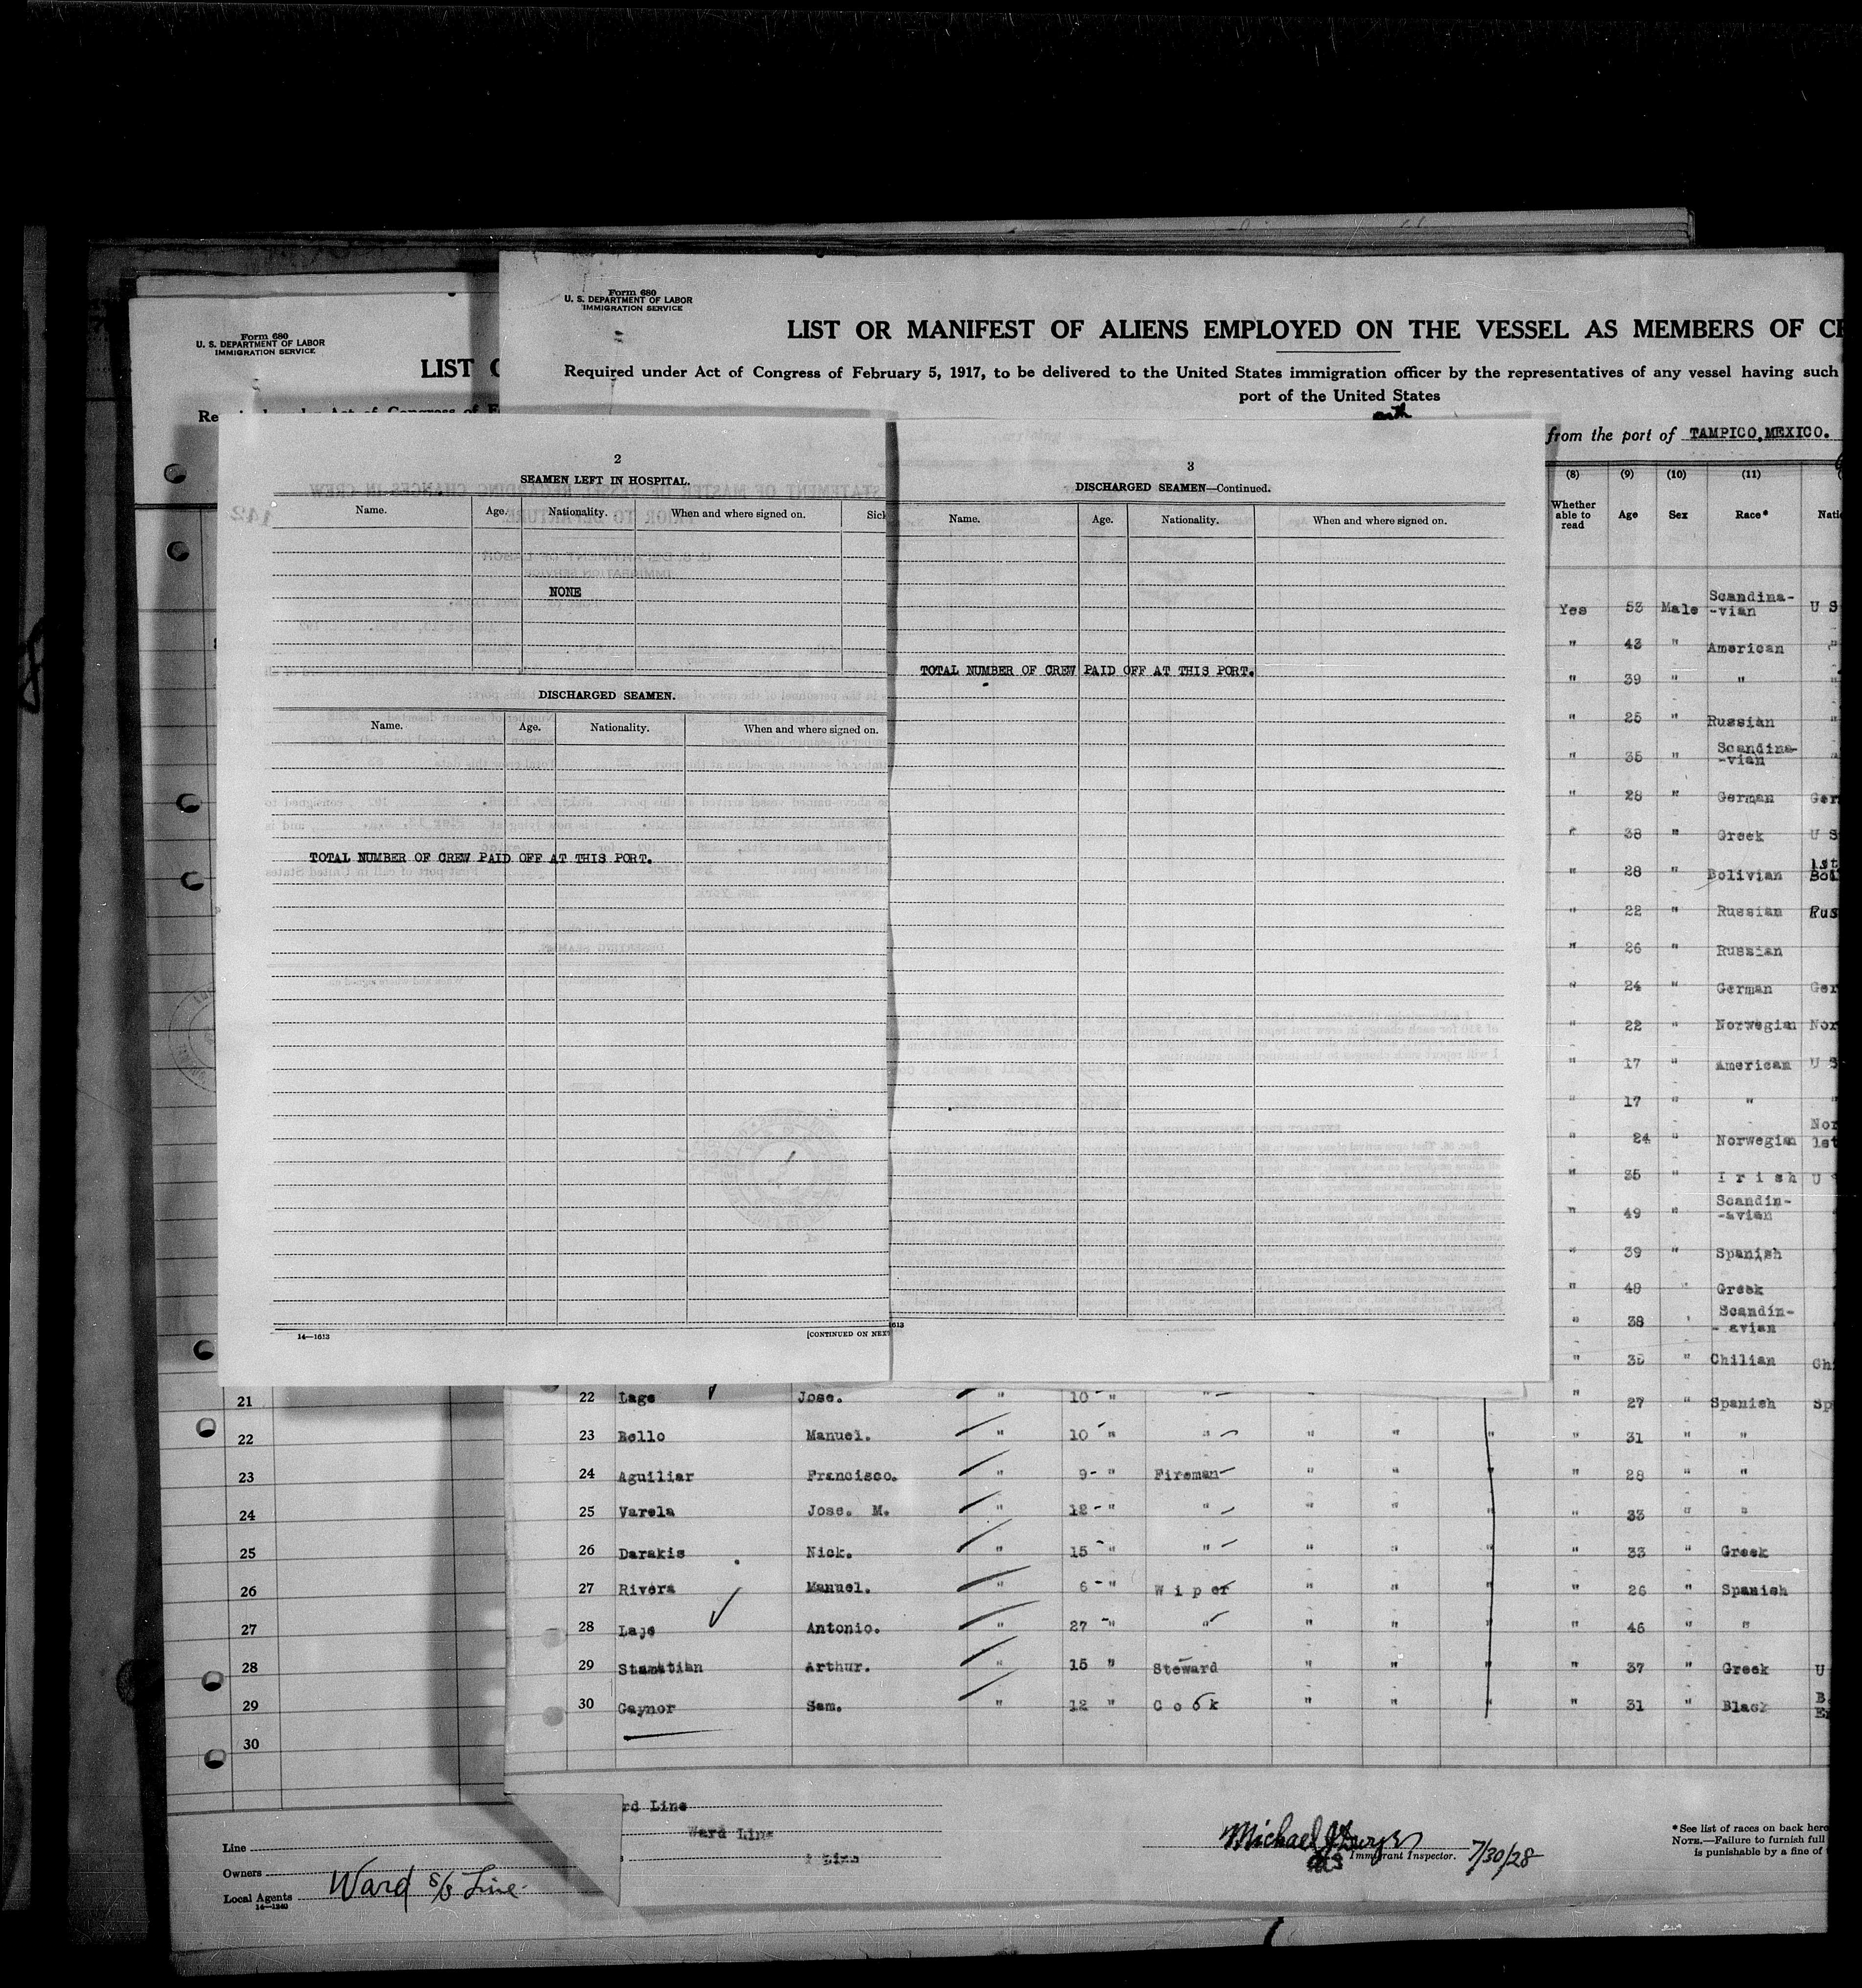 Form 680
U. S. DEPARTMENT OF LABOR
IMMIGRATION SERVICE
LIST
Form 680
U. S. DEPARTMENT OF LABOR
IMMIGRATION SERVICE
LIST OR MANIFEST OF ALIENS EMPLOYED ON THE VESSEL AS MEMBERS OF
Required under Act of Congress of February 5, 1917, to be delivered to the United States immigration officer by the representatives of any vessel having such
port of the United States
from the port of TAMPICO, MEXICO.
2
SEAMEN LEFT IN HOSPITAL.
Name. Age. Nationality. When and where signed on.
NONE
DISCHARGED SEAMEN.
Name. Age. Nationality. When and where signed on.
TOTAL NUMBER OF CREW PAID OFF AT THIS PORT.
14—1613
[CONTINUED ON
3
DISCHARGED SEAMEN—Continued.
Name. Age. Nationality. When and where signed on.
TOTAL NUMBER OF CREW PAID OFF AT THIS PORT.
(8) (9) (10) (11)
Whether able to read Age Sex Race*
Yes 53 Male Scandina-
-vian U S
" 43 " American "
" 39 " " "
" 25 " Russian "
" 35 " Scandina-
-vian "
" 28 " German
" 38 " Greek U S
" 28 " Bolivian 1st
" 22 " Russian
" 26 " Russian
" 24 " German
" 22 " Norwegian
" 17 " American U S
" 17 " " "
" 24 " Norwegian 1st
" 35 " Irish U
" 49 " Scandin-
-avian
" 39 " Spanish
" 49 " Greek
" 38 " Scandin-
-avian
" 35 " Chilian
22 Lage Jose. " 10 " " " 27 " Spanish
23 Bello Manuel. " 10 " " " " " " 31 " "
24 Aguiliar Francisco. " 9 " Fireman " " " " 28 " "
25 Varela Jose. M. " 12 " " " " " " 33 " "
26 Darakis Nick. " 15 " " " " " " 33 " Greek
27 Rivera Manuel. " 6 " Wiper " " " " 26 " Spanish
28 Lage Antonio. " 27 " " " " " " 46 " "
29 Stamatian Arthur. " 15 " Steward " " " " 37 " Greek U
30 Gaynor Sam. " 12 " Cook " " " " 31 " Black B
21
22
23
24
25
26
27
28
29
30
Line
Owners
Local Agents Ward S/S Line
14—1240
rd Line
Ward Line
Line
Immigrant Inspector. 7/30/28
*See list of races on back
NOTE.—Failure to furnish full
is punishable by a fine of